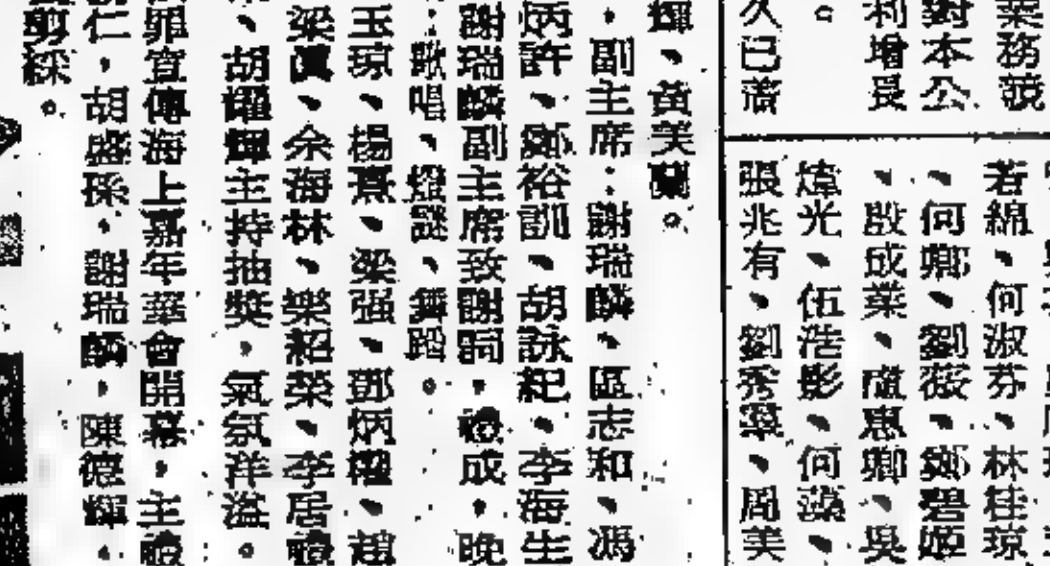 業務競
對本公
利增長
。
久已著
若綿、何淑芬、林桂琼
、何卿、劉薇、鄭碧姬
、殷成業、盧惠卿、吳
煒光、伍浩彭、何
張兆有、劉秀翠、周美
輝、黃美蘭。
，副主席：謝瑞麟、區志和、馮
炳許、鄭裕訓、胡詠紀、李海生
謝瑞麟副主席致謝詞，禮成，晚
：歌唱、燈謎、舞蹈。
玉琼、楊熹、梁强、鄧炳權、趙
梁眞、余海林、樂紹榮、李居禮
、胡耀輝主持抽獎，氣氛洋溢。
罪宣傳海上嘉年華會開幕，主禮
仁，胡盛孫、謝瑞麟，陳德輝、
剪綵。